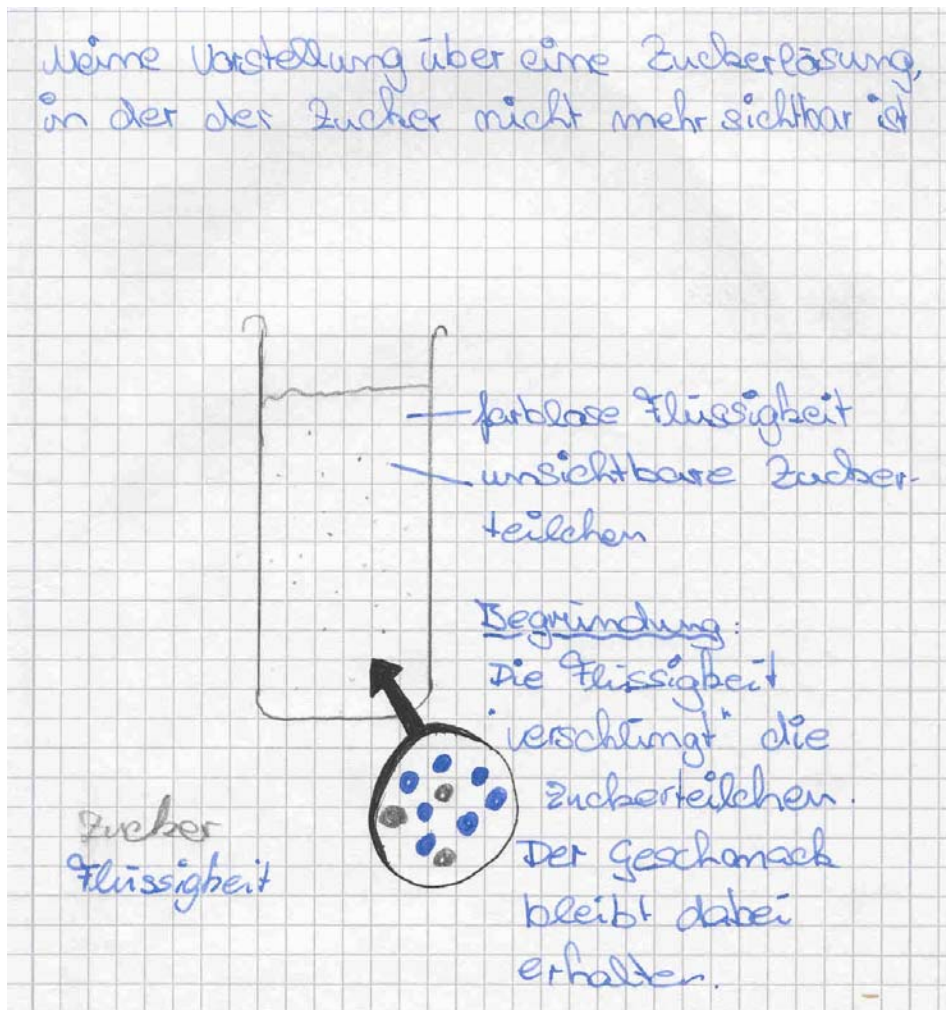 Meine Vorstellung über eine Zuckerlösung,
in der der Zucker nicht mehr sichtbar ist
farblose Flüssigkeit
unsichtbare Zucker-
teilchen
Begründung:
Die Flüssigkeit
"verschlingt" die
Zuckerteilchen.
Der Geschmack
bleibt dabei
erhalten.
Zucker
Flüssigkeit